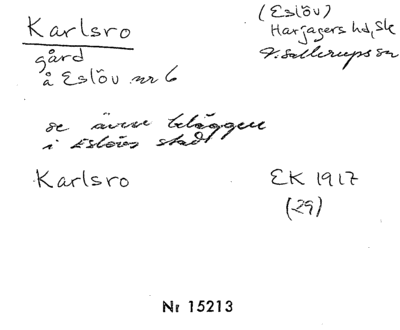 Karlsro
gård
å Eslöv nr 6
(Eslöv)
Harjagers hd, Sk
V. Sallerups sn
se även beläggen
i Eslövs stad
Karlsro
EK 1917
(29)
Nr 15213